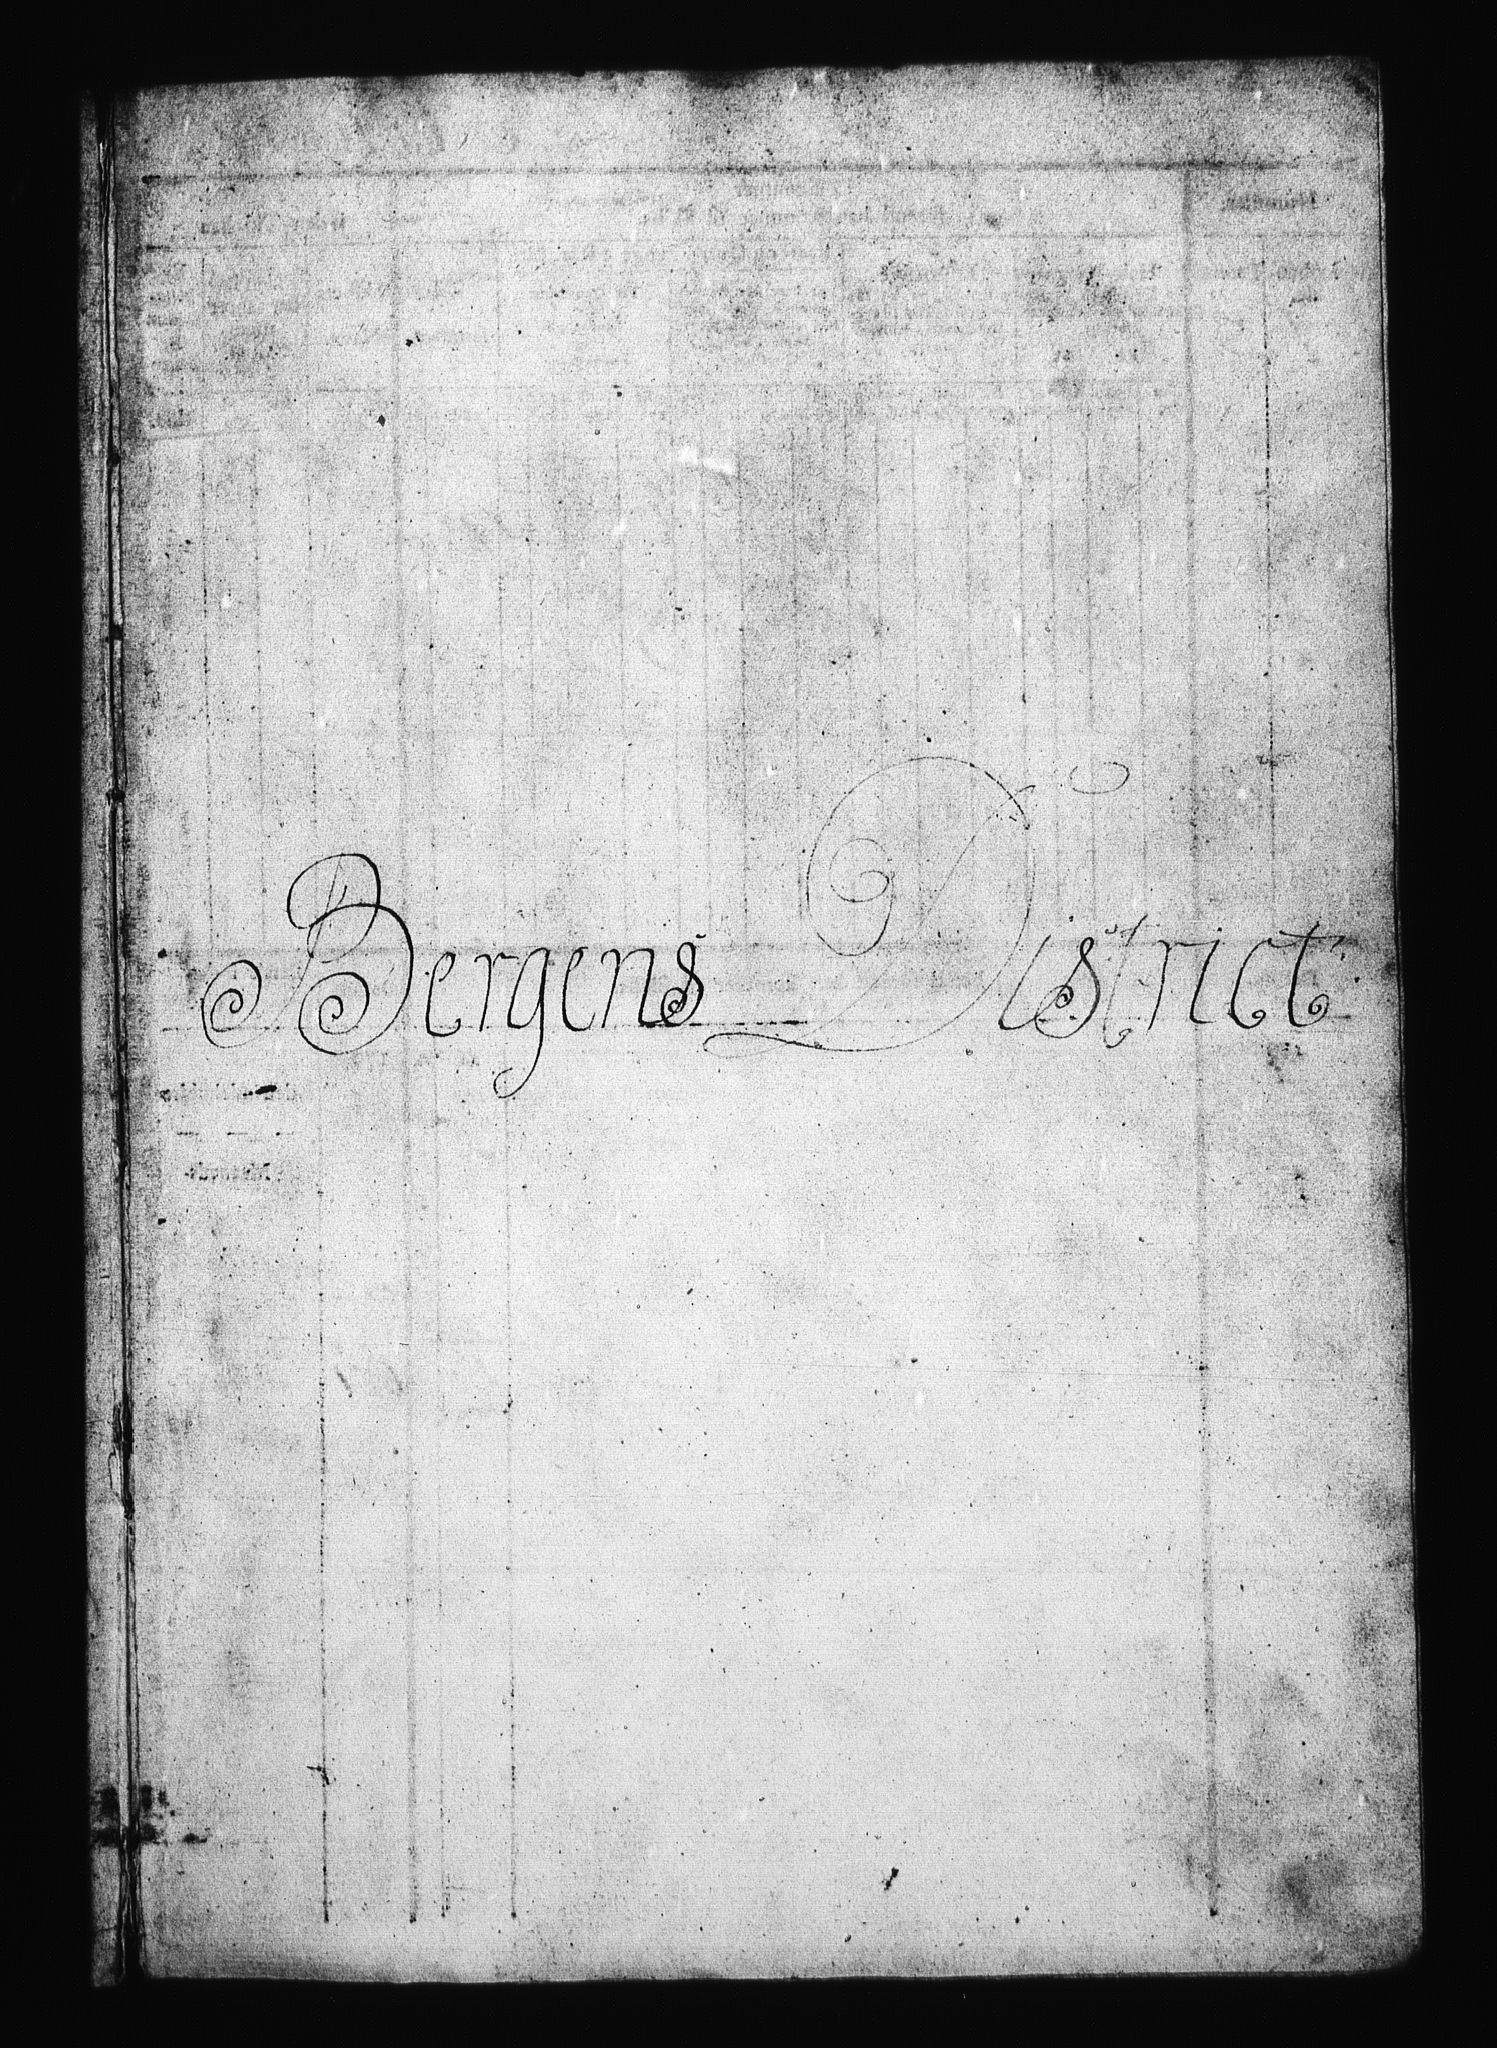 Bergens District